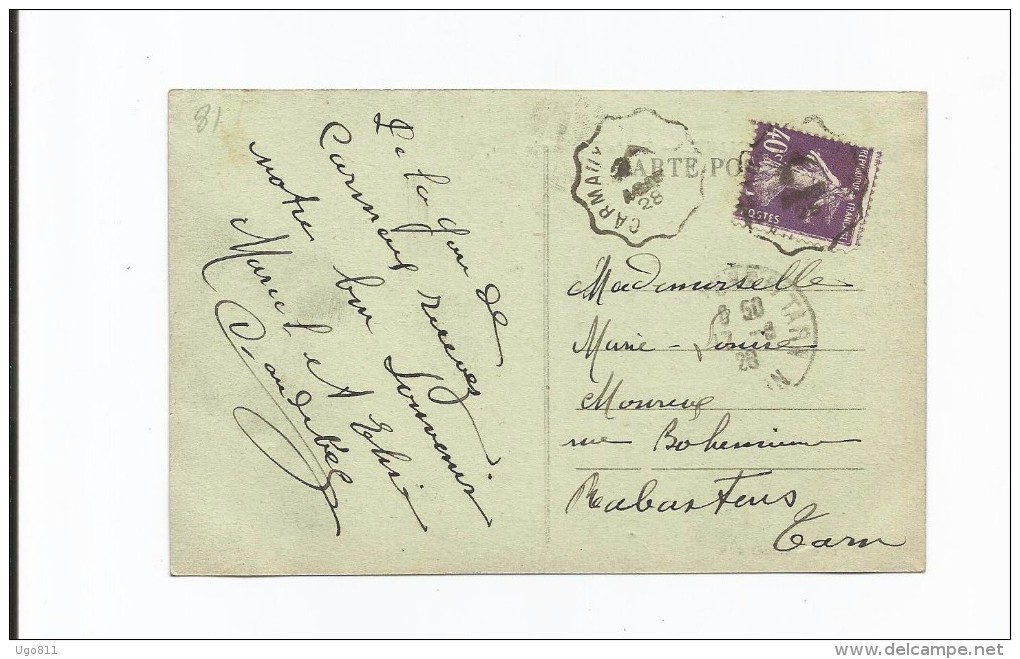 81
De la gau de
Carmaux recevez
notre bon Souvenir
Marcel et Elise
CARMAUX
28
CARTE POS
40c
REPUBLIQUE FRANCAISE
POSTES
TARN
50
28
Mademoiselle
Marie-Louise
rue Bohemienne
Rabastens
Tarn
Ugo811
delcampe.net